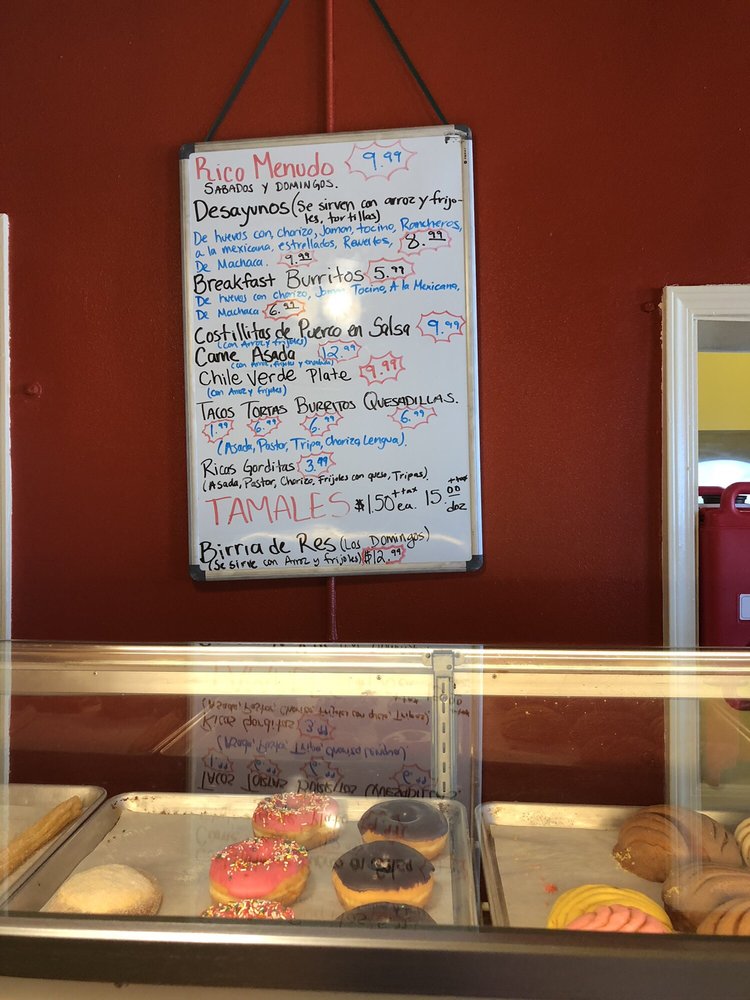 Rico Menudo 9.99
SABADOS Y DOMINGOS.
Desayunos (Se sirven con arroz y frijo-
les, tortillas)
De huevos con, chorizo, Jamon, tocino, Rancheros,
a la mexicana, estrellados, Revueltos, 8.99
De Machaca. 9.99
Breakfast Burritos 5.99
De huevos con chorizo, Jamon Tocino, A la Mexicana,
De Machaca 6.99
Costillitas de Puerco en Salsa 9.99
(con Arroz y frijoles)
Carne Asada 12.99
(con Arroz, frijoles y ensalada)
Chile Verde Plate 9.99
(con Arroz y frijoles)
TACOS TORTAS BURRITOS QUESADILLAS.
1.99 6.99 6.99 6.99
(Asada, Pastor, Tripa, Chorizo Lengua).
Ricas Gorditas 3.99
(Asada, Pastor, Chorizo, Frijoles con queso, Tripas).
TAMALES $1.50 + tax ea. 15.00 + tax doz
Birria de Res (Los Domingos)
(Se sirve con Arroz y frijoles) $12.99